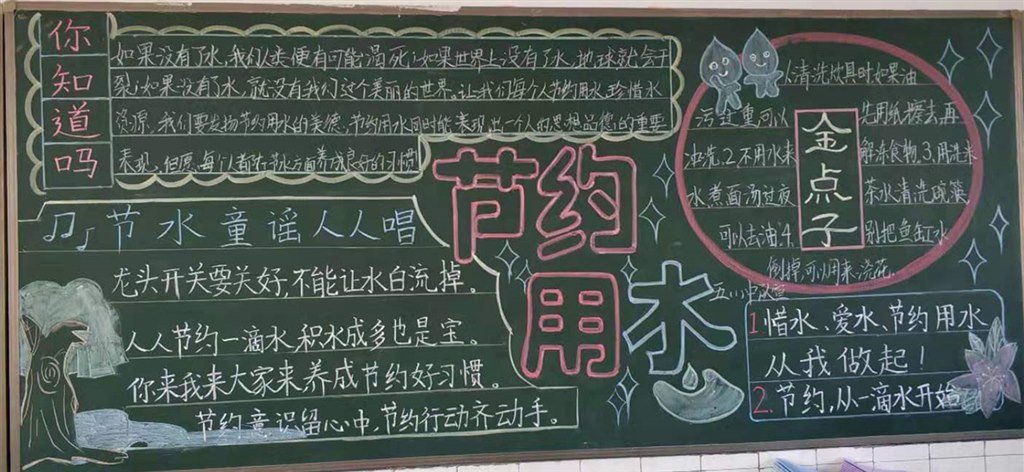 你知道吗
如果没有了水,我们人类便有可能渴死;如果世界上没有了水,地球就会干
裂;如果没有了水,就没有我们这个美丽的世界。让我们每个人节约用水,珍惜水
资源。我们要发扬节约用水的美德,节约用水同时能表现出一个人的思想品德的重要
表现。但愿每个人都在节水方面养成良好的习惯
节约
用水
节水童谣人人唱
龙头开关要关好,不能让水白流掉。
人人节约一滴水,积水成多也是宝。
你来我来大家来养成节约好习惯。
节约意识留心中,节约行动齐动手。
金点子
清洗炊具时如果油
污过重可以 先用纸擦去,再
洗。2.不用水来 解冻食物。3.用洗米
水煮面汤过夜 茶水清洗碗筷,
可以去油。4. 别把鱼缸水
倒掉可以用来浇花。
1 惜水、爱水、节约用水
从我做起!
2. 节约,从一滴水开始